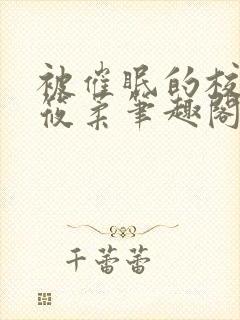 被催眠的校
筱柔笔趣阁
千蕾蕾